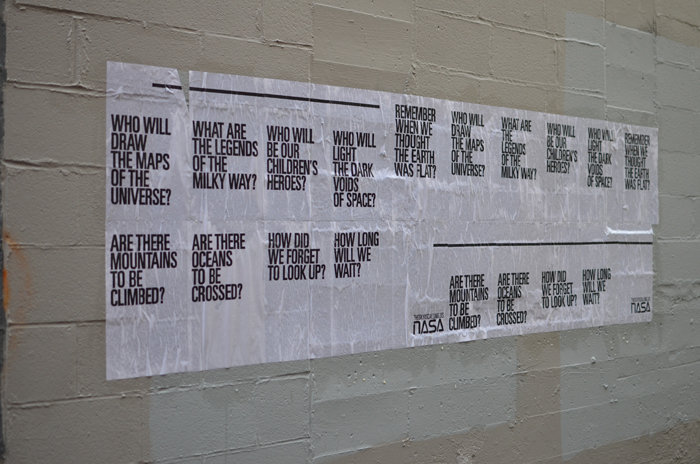 WHO WILL
DRAW
THE MAPS
OF THE
UNIVERSE?
WHAT ARE
THE LEGENDS
OF THE
MILKY WAY?
WHO WILL
BE OUR
CHILDREN'S
HEROES?
WHO WILL
LIGHT
THE DARK
VOIDS
OF SPACE?
REMEMBER
WHEN WE
THOUGHT
THE EARTH
WAS FLAT?
WHO WILL
DRAW
THE MAPS
OF THE
UNIVERSE?
WHAT ARE
THE
LEGENDS
OF THE
MILKY WAY?
WHO WILL
BE OUR
CHILDREN'S
HEROES?
WHO WILL
LIGHT
THE DARK
VOIDS
OF SPACE?
REMEMBER
WHEN WE
THOUGHT
THE EARTH
WAS FLAT?
ARE THERE
MOUNTAINS
TO BE
CLIMBED?
ARE THERE
OCEANS
TO BE
CROSSED?
HOW DID
WE FORGET
TO LOOK UP?
HOW LONG
WILL WE
WAIT?
NASA
ARE THERE
MOUNTAINS
TO BE
CLIMBED?
ARE THERE
OCEANS
TO BE
CROSSED?
HOW DID
WE FORGET
TO LOOK UP?
HOW LONG
WILL WE
WAIT?
NASA